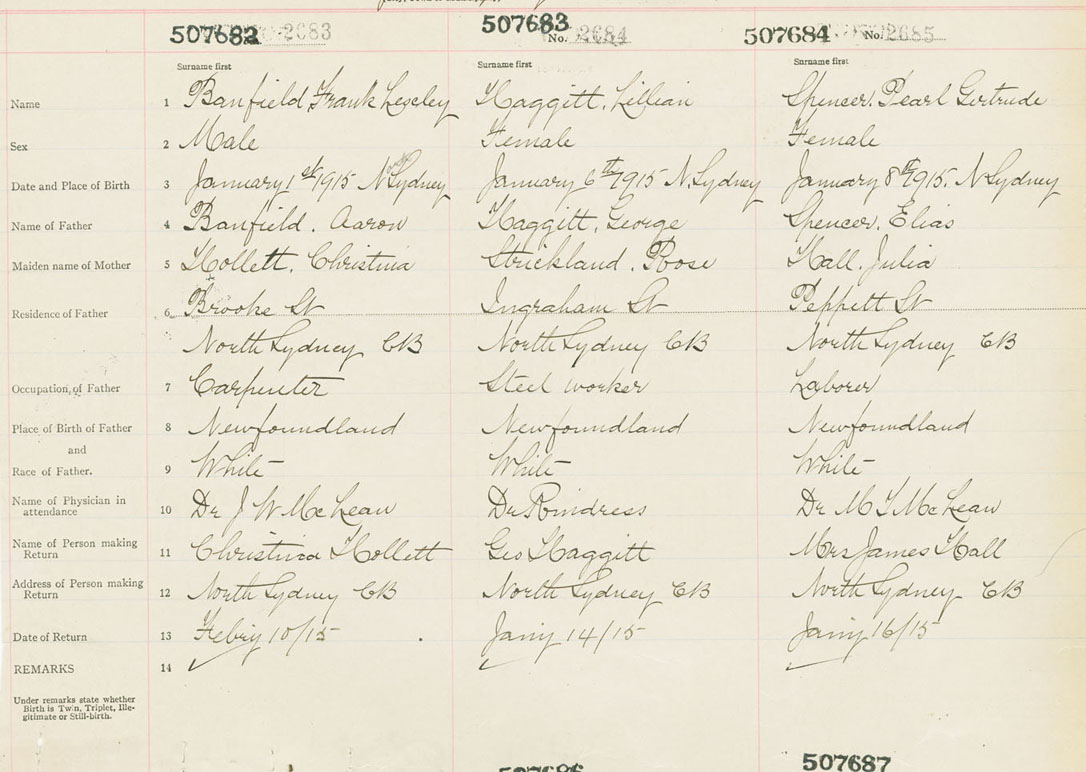 507682 2683 507683 No. 2684 507684 No. 2685
Surname first Surname first Surname first
Name 1 Banfield, Frank Leseley Haggitt, Lillian Spencer, Pearl Gertrude
Sex 2 Male Female Female
Date and Place of Birth 3 January 1st 1915 N Sydney January 6th 1915 N. Sydney January 8th 1915. N Sydney
Name of Father 4 Banfield. Aaron Haggitt, George Spencer, Elias
Maiden name of Mother 5 Hollett, Christina Strickland. Rose Hall, Julia
Residence of Father 6 Brooke St Ingraham St Peppett St
North Sydney CB North Sydney CB North Sydney CB
Occupation of Father 7 Carpenter Steel worker Laborer
Place of Birth of Father 8 Newfoundland Newfoundland Newfoundland
and
Race of Father. 9 White White White
Name of Physician in attendance 10 Dr J W McLean Dr Rindress Dr M T McLean
Name of Person making Return 11 Christina Hollett Geo Haggitt Mrs James Hall
Address of Person making Return 12 North Sydney CB North Sydney CB North Sydney CB
Date of Return 13 Febry 10/15 Jany 14/15 Jany 16/15
REMARKS 14
Under remarks state whether
Birth is Twin, Triplet, Ille-
gitimate or Still-birth.
507687